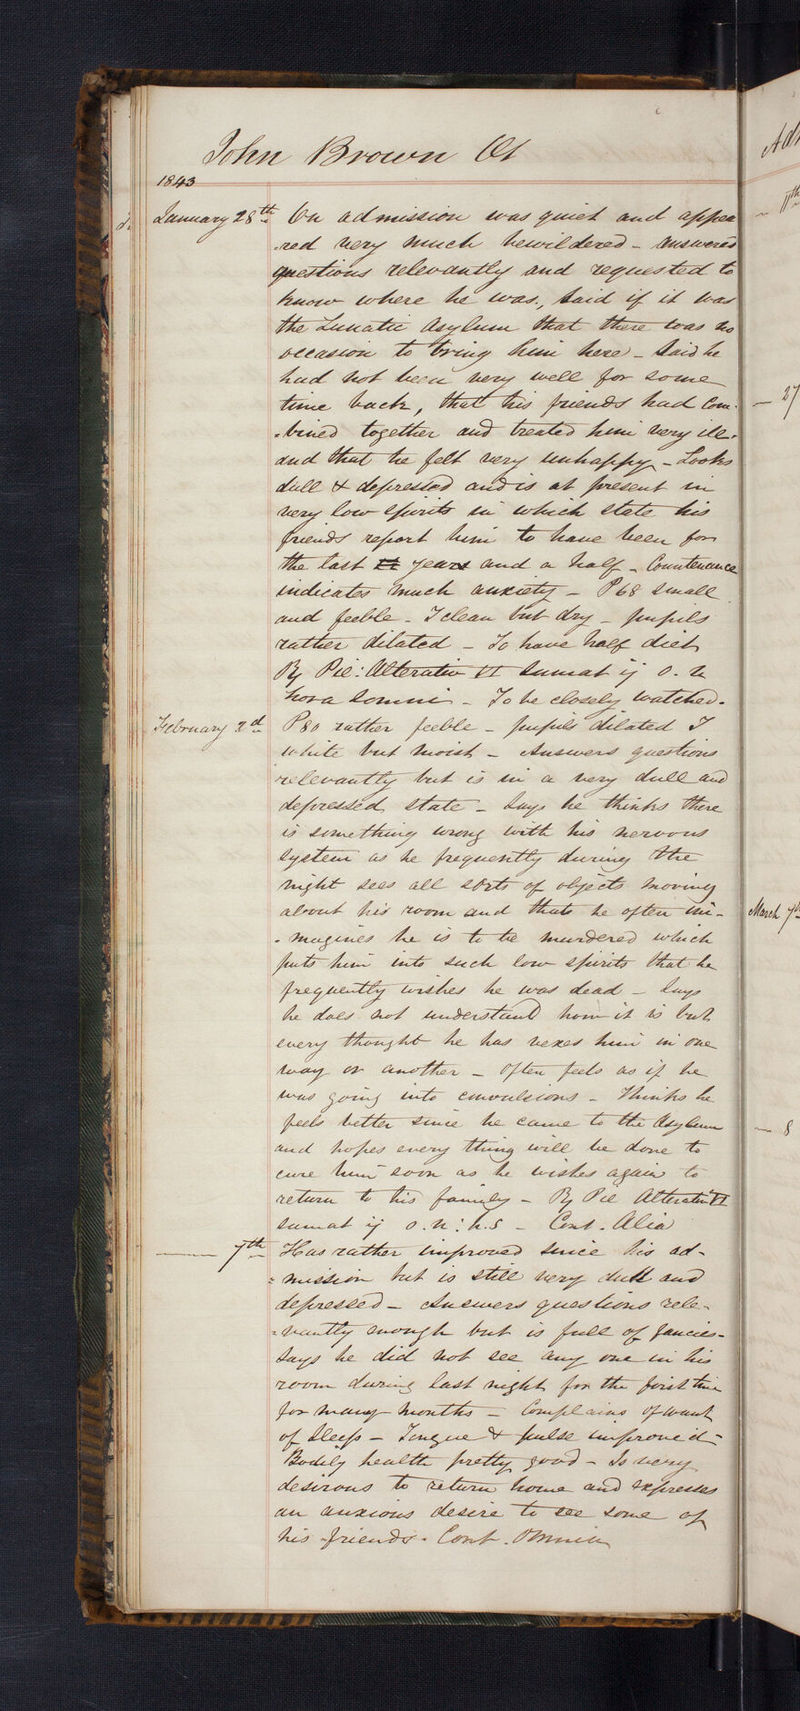 John Brown Æt
1843
January 28th On admission was quiet and appea
-red very much bewildered - Answered
questions relevantly and requested to
know where he was, said if it was
the Lunatic Asylum that there was no
occasion to bring him here - Said he
had not been very well for some
time back, that his friends had com-
-bined together and treated him very ill -
and that he felt very unhappy - Looks
dull & depressed and is at present in
very low spirits in which state his
friends report him to have been for
the last years and a half - Countenance
indicates much anxiety - P 68 small
and feeble - T clean but dry - pupils
rather dilated - To have half diet
℞ Pil: Alterativ VI Sumat ij o. n
hora somni - To be closely watched -
February 2d P 80 rather feeble - pupils dilated T
white but moist - Answers questions
relevantly but is in a very dull and
depressed state - Says he thinks there
is something wrong with his nervous
system as he frequently during the
night sees all sorts of objects moving
about his room and that he often im-
-magines he is to be murdered which
puts him into such low spirits that he
frequently wishes he was dead - Says
he does not understand how it is but
every thought he has vexes him in one
way or another - Often feels as if he
was going into convulsions - Thinks he
feels better since he came to the Asylum
and hopes every thing will be done to
cure him soon as he wishes again to
return to his family - ℞ Pil Alterativ VI
sumat ij o. n: h.s - Cont. Alia
7th Has rather improved since his ad-
=mission but is still very dull and
depressed - Answers questions rele-
=vantly enough but is full of fancies -
Says he did not see any one in his
room during last night for the first time
for many months - Complains of want
of sleep - Tongue & pulse improved -
Bodily health pretty good - Is very
desirous to return home and expresses
an anxious desire to see some of
his friends - Cont. Omnia
11th
27
March 7th
8